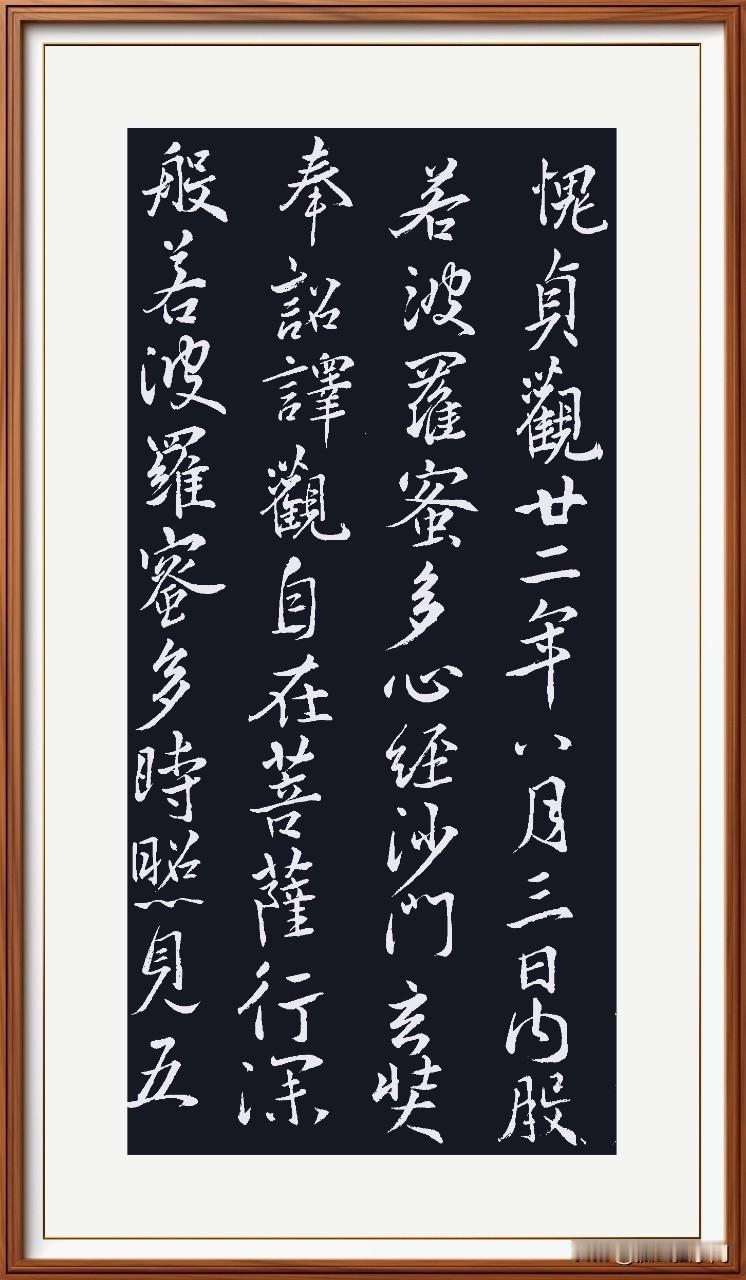 愧貞觀廿二年八月三日內般
若波羅蜜多心經沙門玄奘
奉詔譯觀自在菩薩行深
般若波羅蜜多時照見五